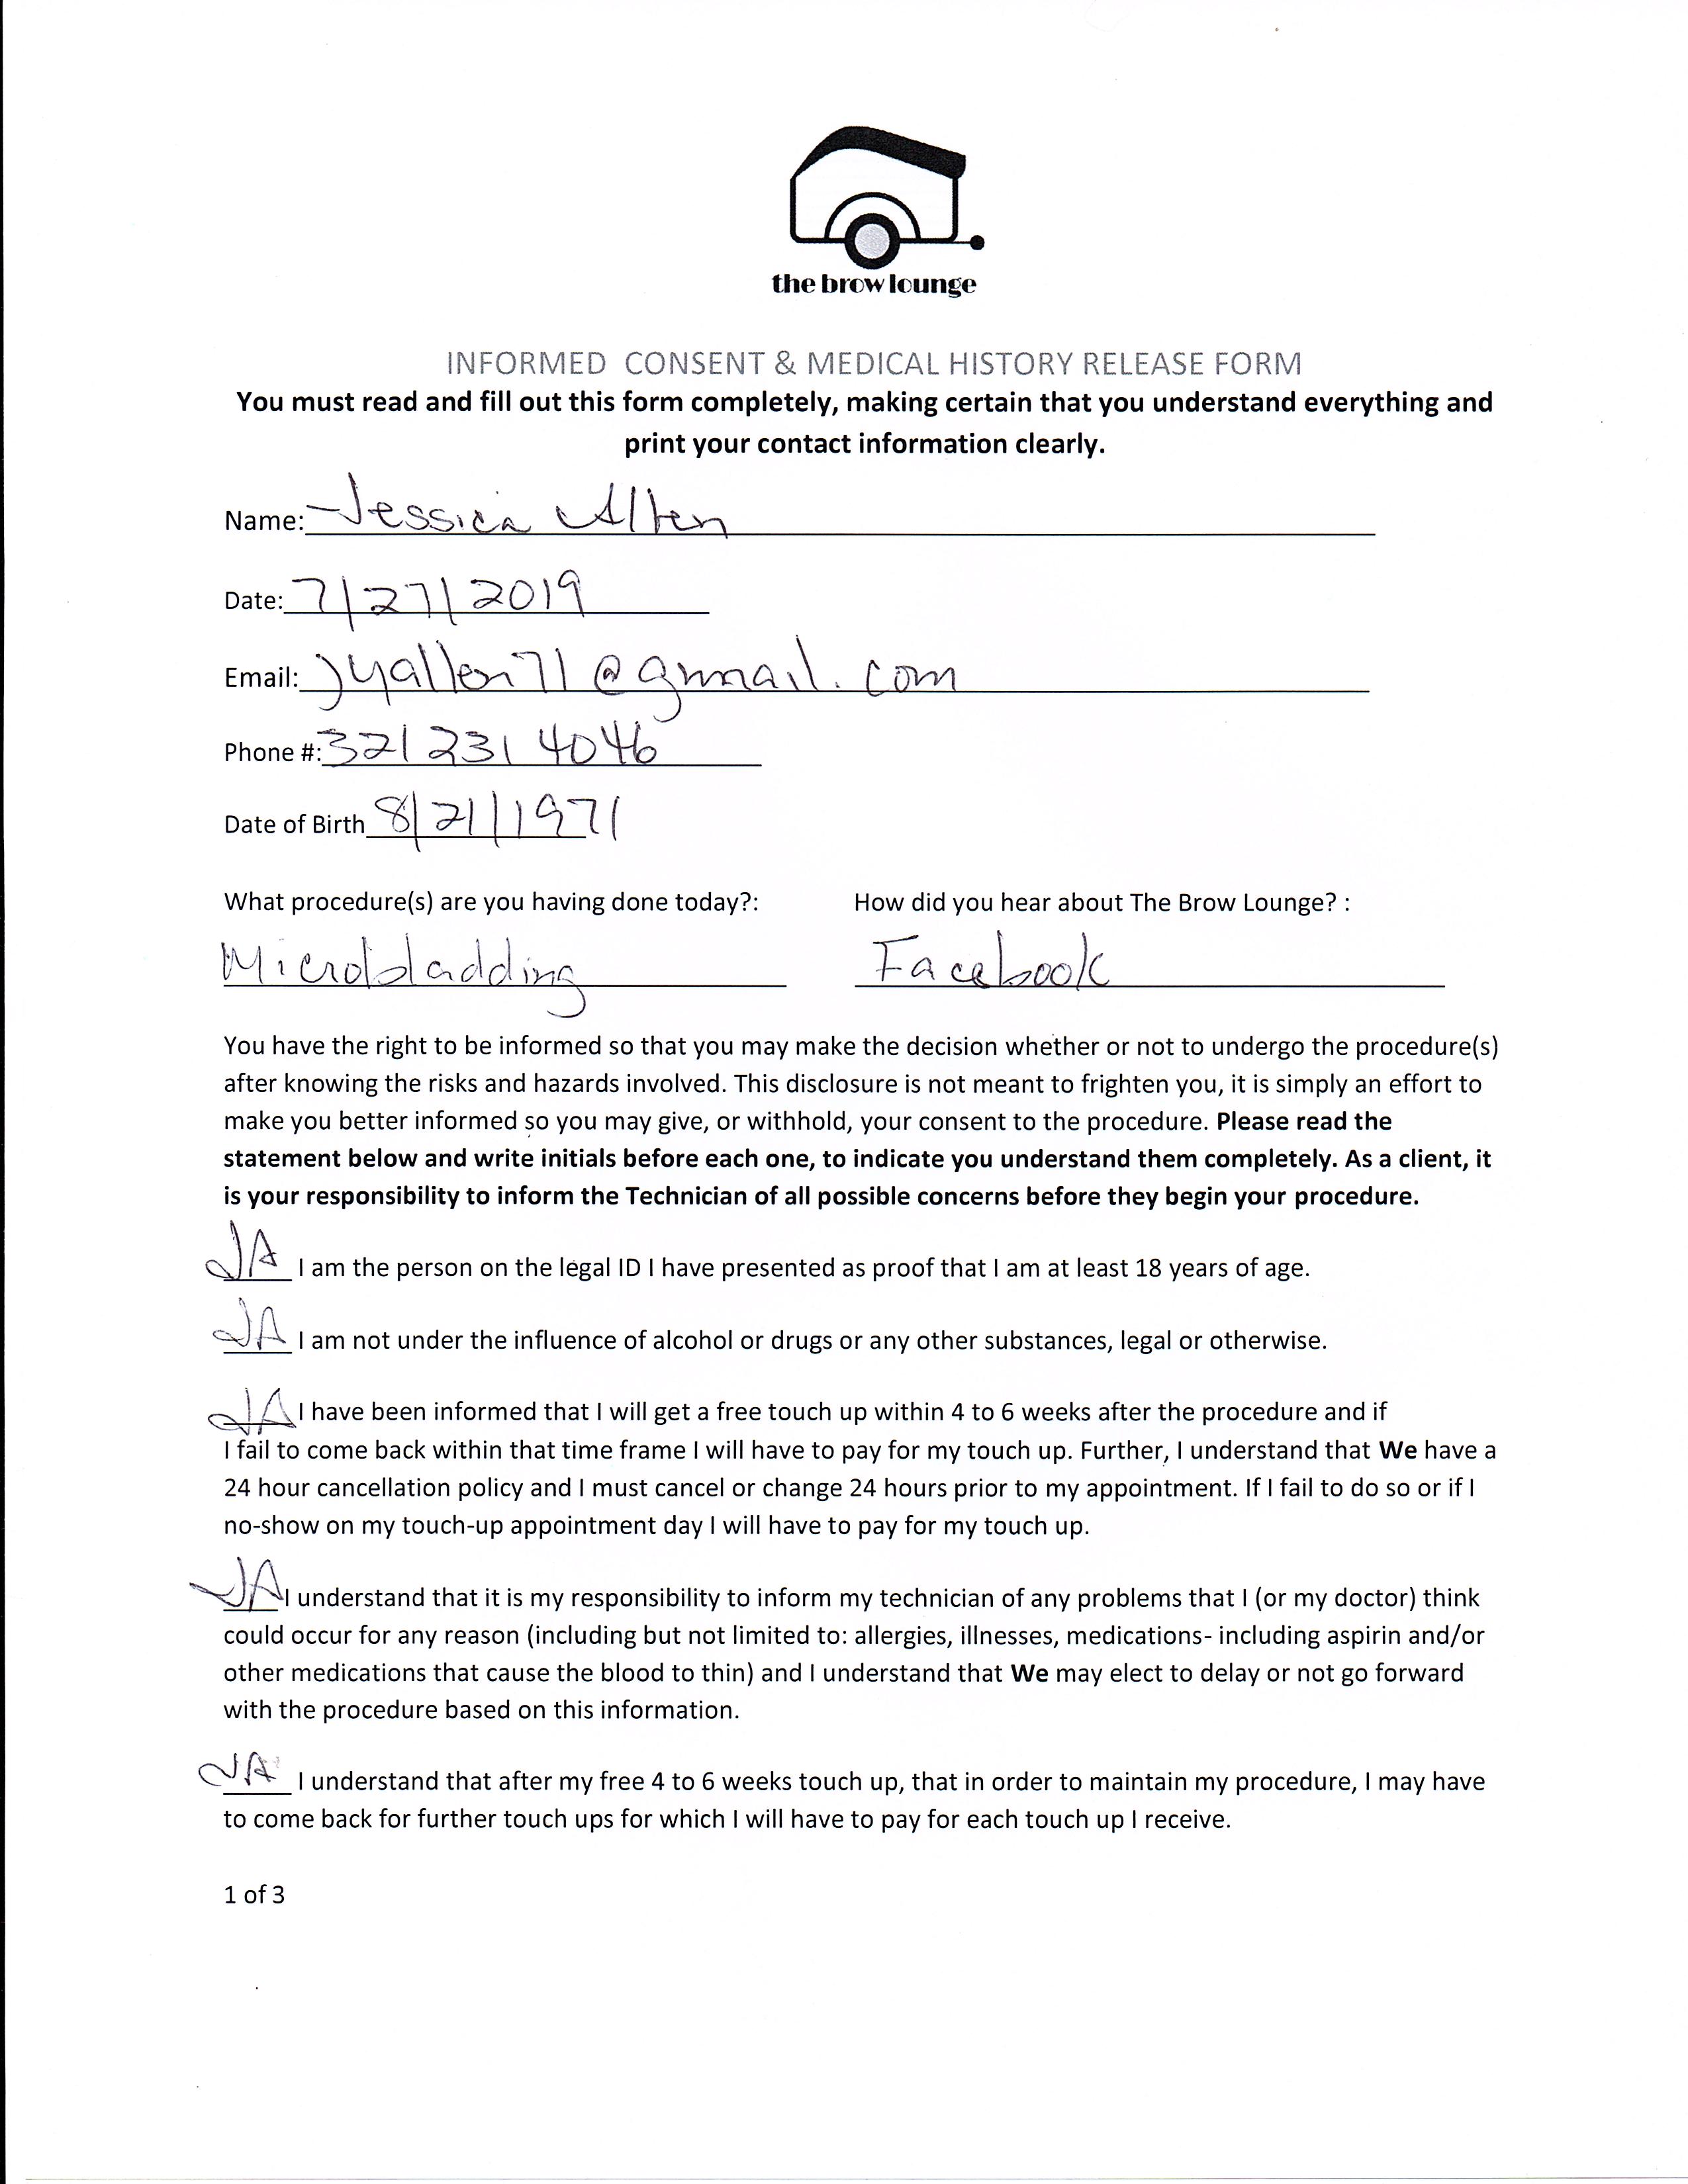 the brow lounge
INFORMED CONSENT & MEDICAL HISTORY RELEASE FORM
You must read and fill out this form completely, making certain that you understand everything and
print your contact information clearly.
Name: Jessica Allen
Date: 7/27/2019
Email: jyallen71@gmail.com
Phone #: 321 231 4046
Date of Birth 8/21/1971
What procedure(s) are you having done today?: How did you hear about The Brow Lounge? :
Microbladding Facebook
You have the right to be informed so that you may make the decision whether or not to undergo the procedure(s)
after knowing the risks and hazards involved. This disclosure is not meant to frighten you, it is simply an effort to
make you better informed so you may give, or withhold, your consent to the procedure. Please read the
statement below and write initials before each one, to indicate you understand them completely. As a client, it
is your responsibility to inform the Technician of all possible concerns before they begin your procedure.
JA I am the person on the legal ID I have presented as proof that I am at least 18 years of age.
JA I am not under the influence of alcohol or drugs or any other substances, legal or otherwise.
JA I have been informed that I will get a free touch up within 4 to 6 weeks after the procedure and if
I fail to come back within that time frame I will have to pay for my touch up. Further, I understand that We have a
24 hour cancellation policy and I must cancel or change 24 hours prior to my appointment. If I fail to do so or if I
no-show on my touch-up appointment day I will have to pay for my touch up.
JA I understand that it is my responsibility to inform my technician of any problems that I (or my doctor) think
could occur for any reason (including but not limited to: allergies, illnesses, medications- including aspirin and/or
other medications that cause the blood to thin) and I understand that We may elect to delay or not go forward
with the procedure based on this information.
JA I understand that after my free 4 to 6 weeks touch up, that in order to maintain my procedure, I may have
to come back for further touch ups for which I will have to pay for each touch up I receive.
1 of 3